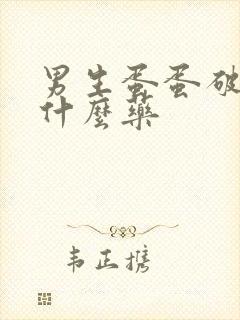 男生蛋蛋破
什麼藥
韦正携